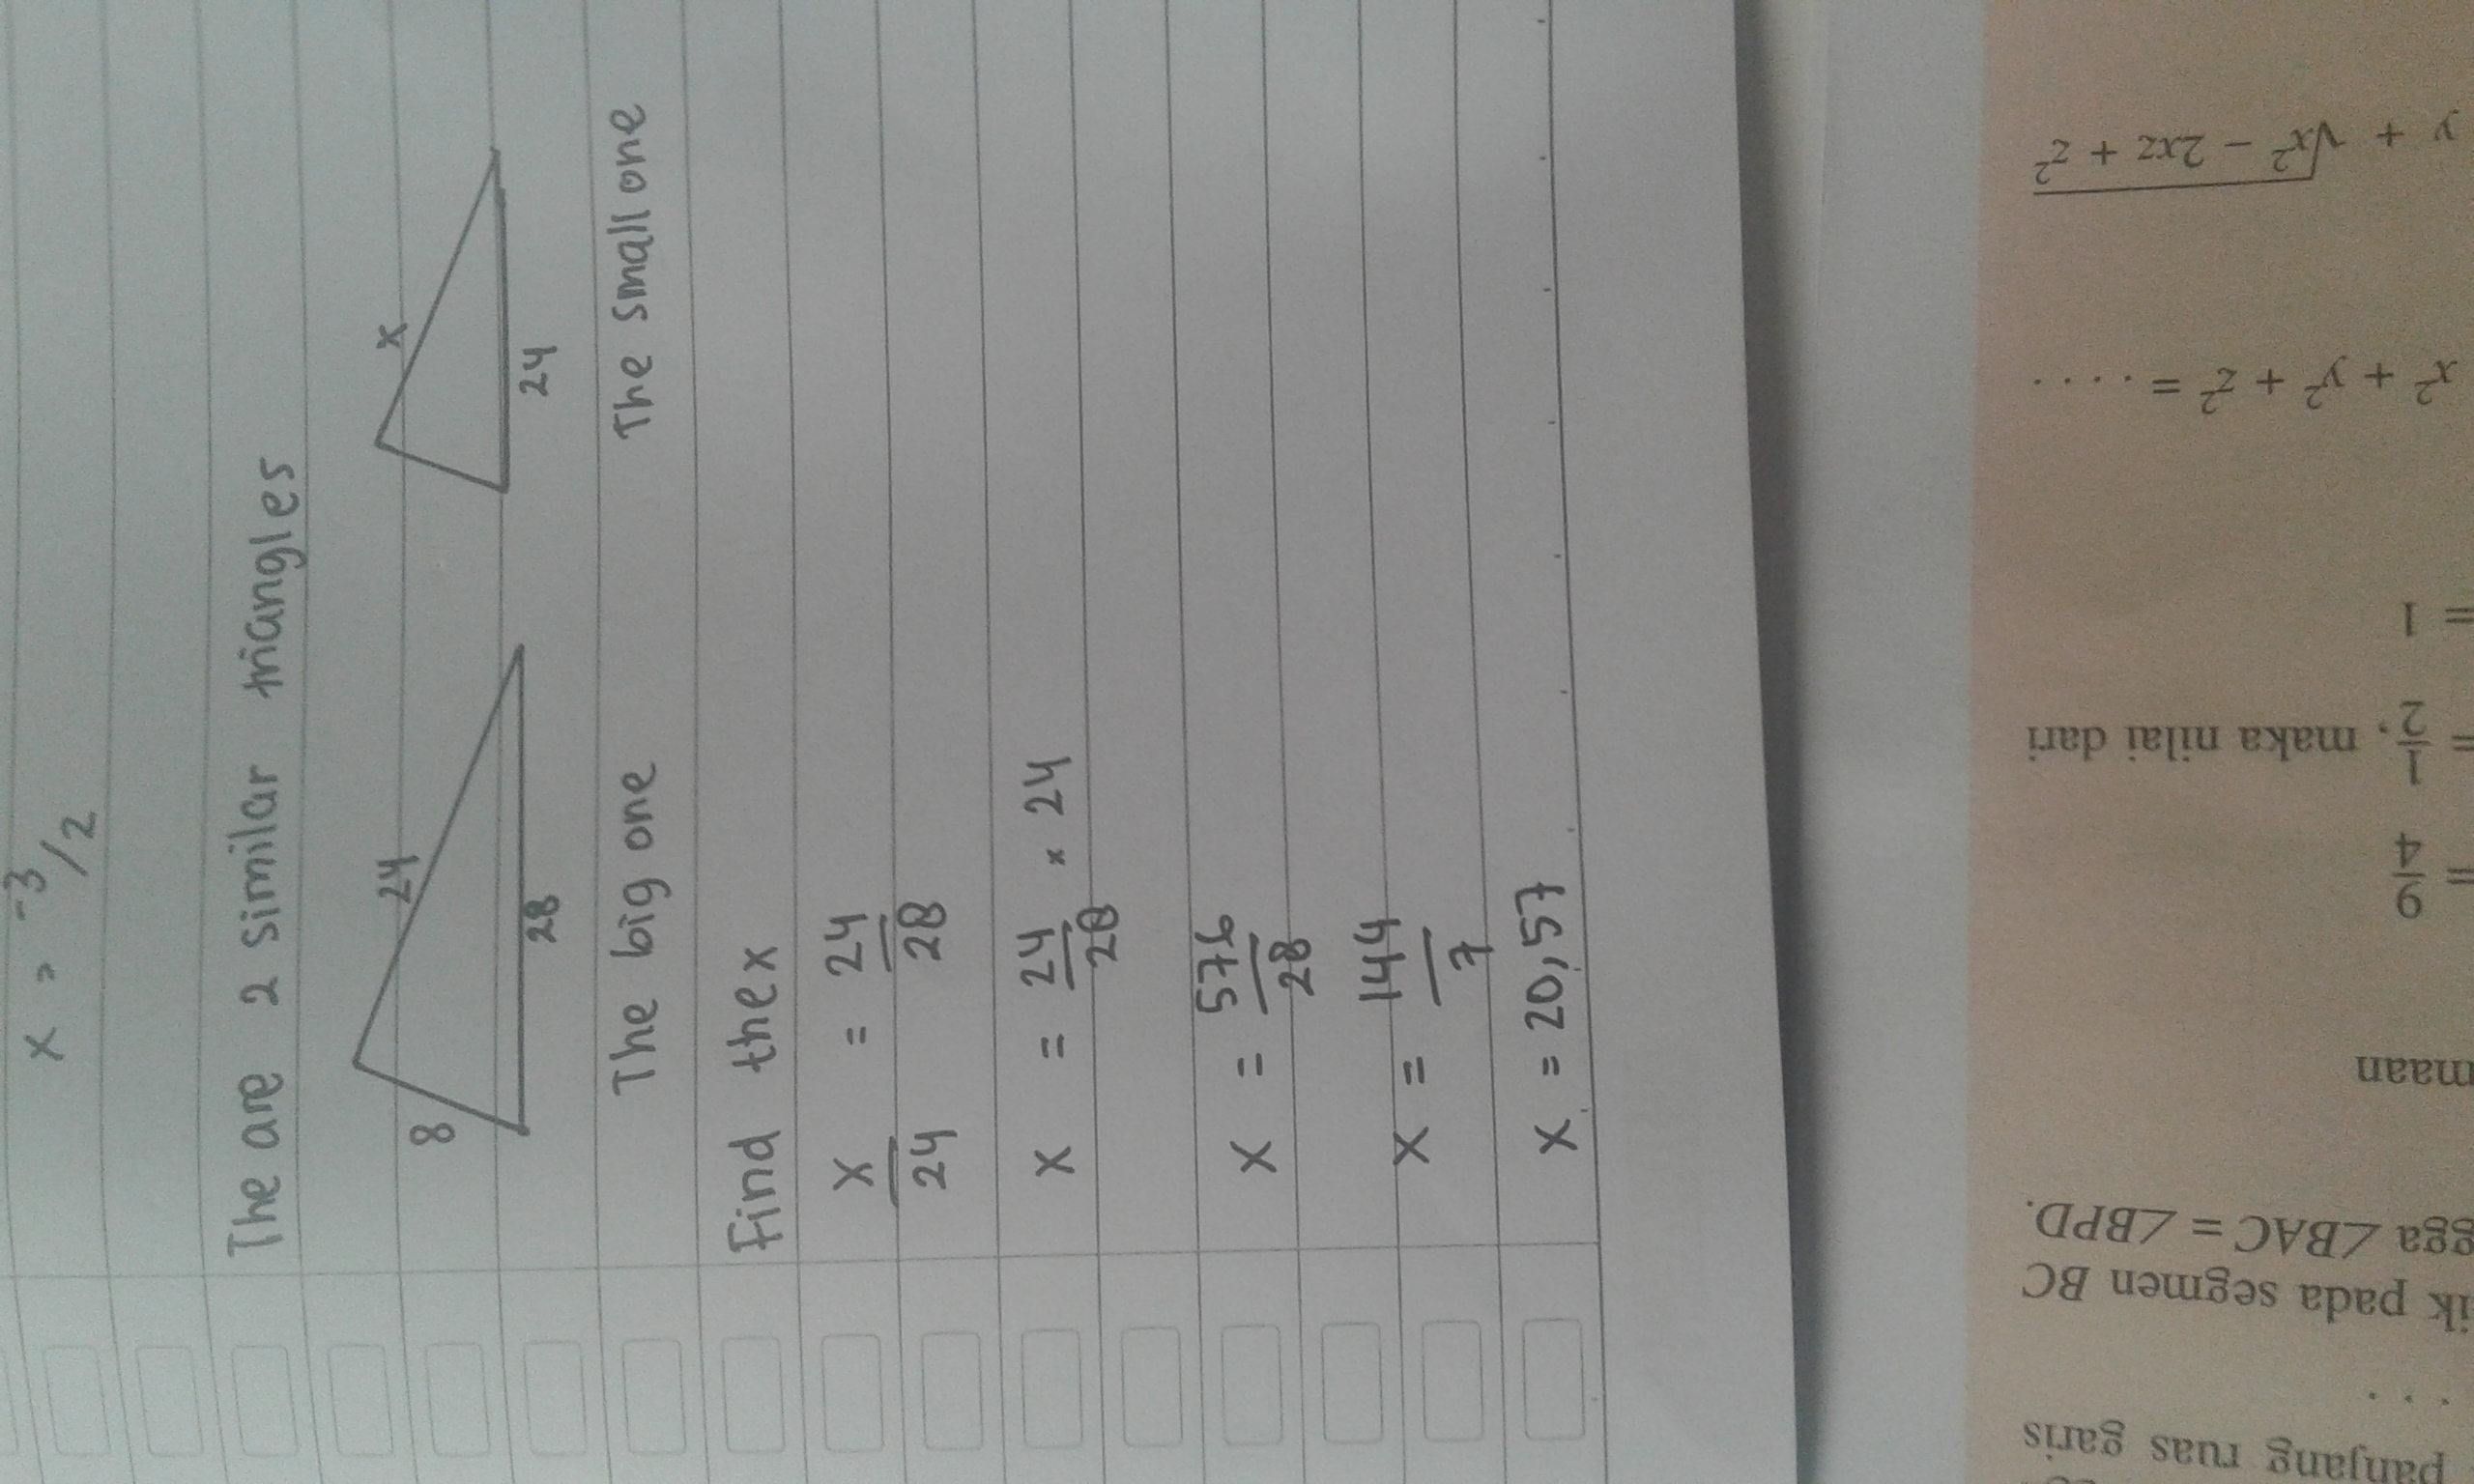 x = -3/2
The are 2 similar triangles
8 24 28
x 24
The big one The small one
Find the x
x/24 = 24/28
x = 24/28 × 24
x = 576/28
x = 144/7
x = 20,57
panjang ruas garis
. . .
ik pada segmen BC
gga ∠BAC = ∠BPD.
maan
= 9/4
= 1/2, maka nilai dari
= 1
x² + y² + z² = . . . .
y + √x² − 2xz + z²